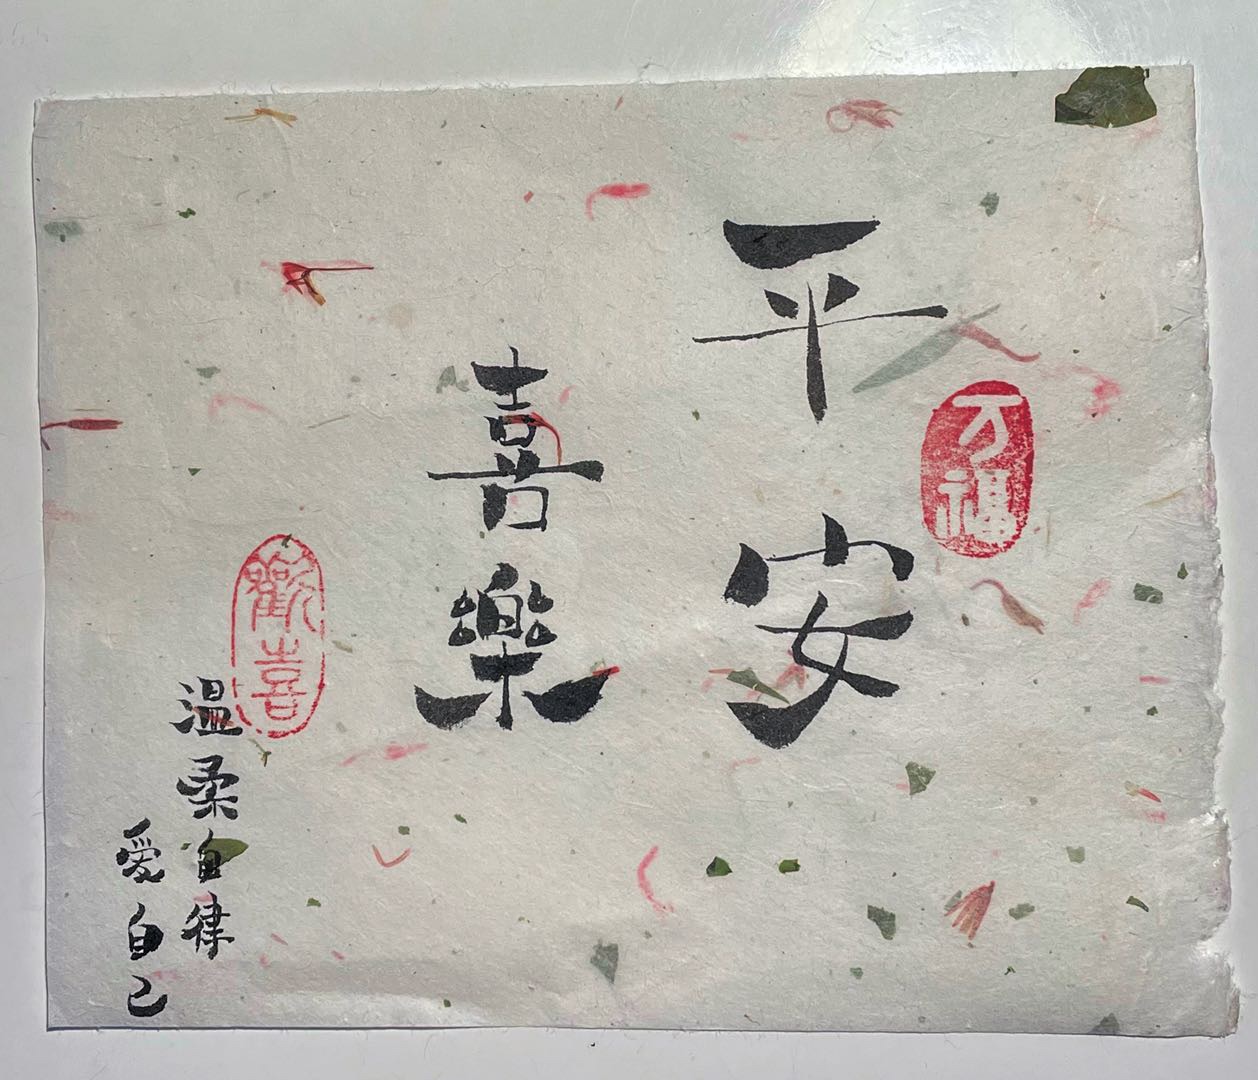 平安
万福
喜樂
歡喜
温柔自律
愛自己